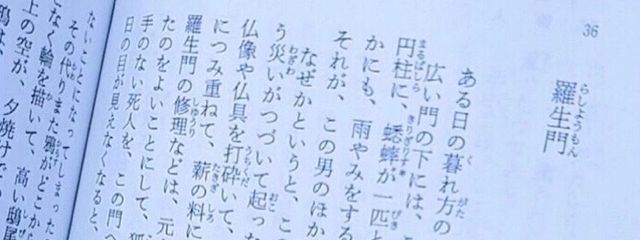 36
らしようもん
羅生門
ある日の暮れ方の
広い門の下には、
円柱に、蟋蟀が一匹と
かにも、雨やみをする
それが、この男のほか
なぜかというと、こ
う災いがつづいて起った
仏像や仏具を打砕いて、
につみ重ねて、薪の料に
羅生門の修理などは、元
たのをよいことにして、
手のない死人を、この門へ
日の目が見えなくなると、
ないことになってしまった
その代りまた鴉がどこから
こなく輪を描いて、高い鴟尾
上の空が、夕焼けで
鴉は、